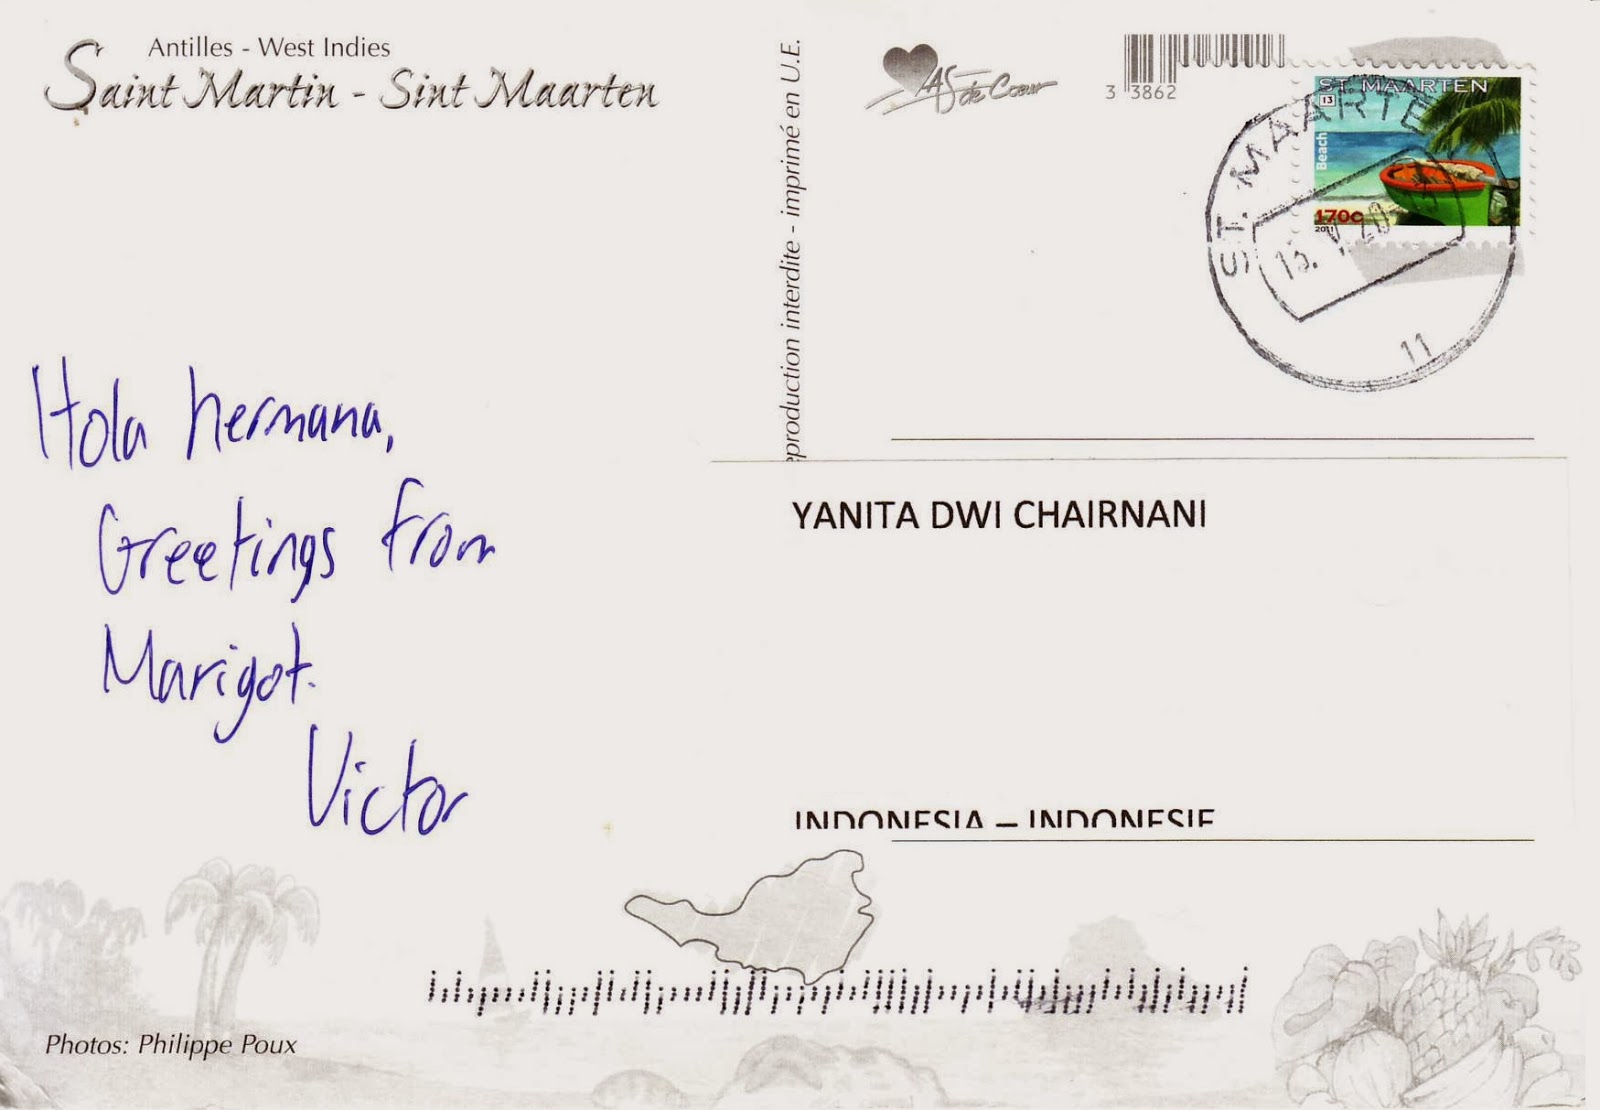 Antilles - West Indies
Saint Martin - Sint Maarten
eproduction interdite - imprimé en U.E.
AS de Cœur
3 3862
ST MAARTEN
13
Beach
170c
2011
ST. MAARTE
11
Hola hermana,
Greetings from
Marigot.
Victor
YANITA DWI CHAIRNANI
INDONESIA – INDONESIE
Photos: Philippe Poux